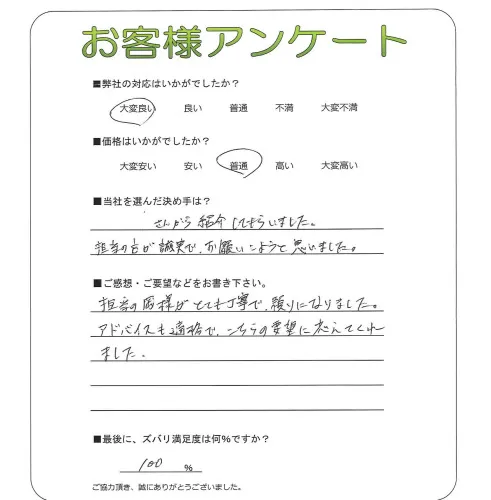 お客様アンケート
■弊社の対応はいかがでしたか？
大変良い 良い 普通 不満 大変不満
■価格はいかがでしたか？
大変安い 安い 普通 高い 大変高い
■当社を選んだ決め手は？
さんから紹介してもらいました。
担当の方が誠実で、お願いしようと思いました。
■ご感想・ご要望などをお書き下さい。
担当の 様がとても丁寧で、頼りになりました。
アドバイスも適格で、こちらの要望に応えてくれ
ました。
■最後に、ズバリ満足度は何%ですか？
100 %
ご協力頂き、誠にありがとうございました。